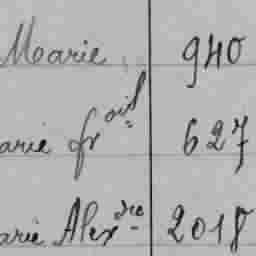 Marie 940
arie frçois 627
arie Alexdre 2018